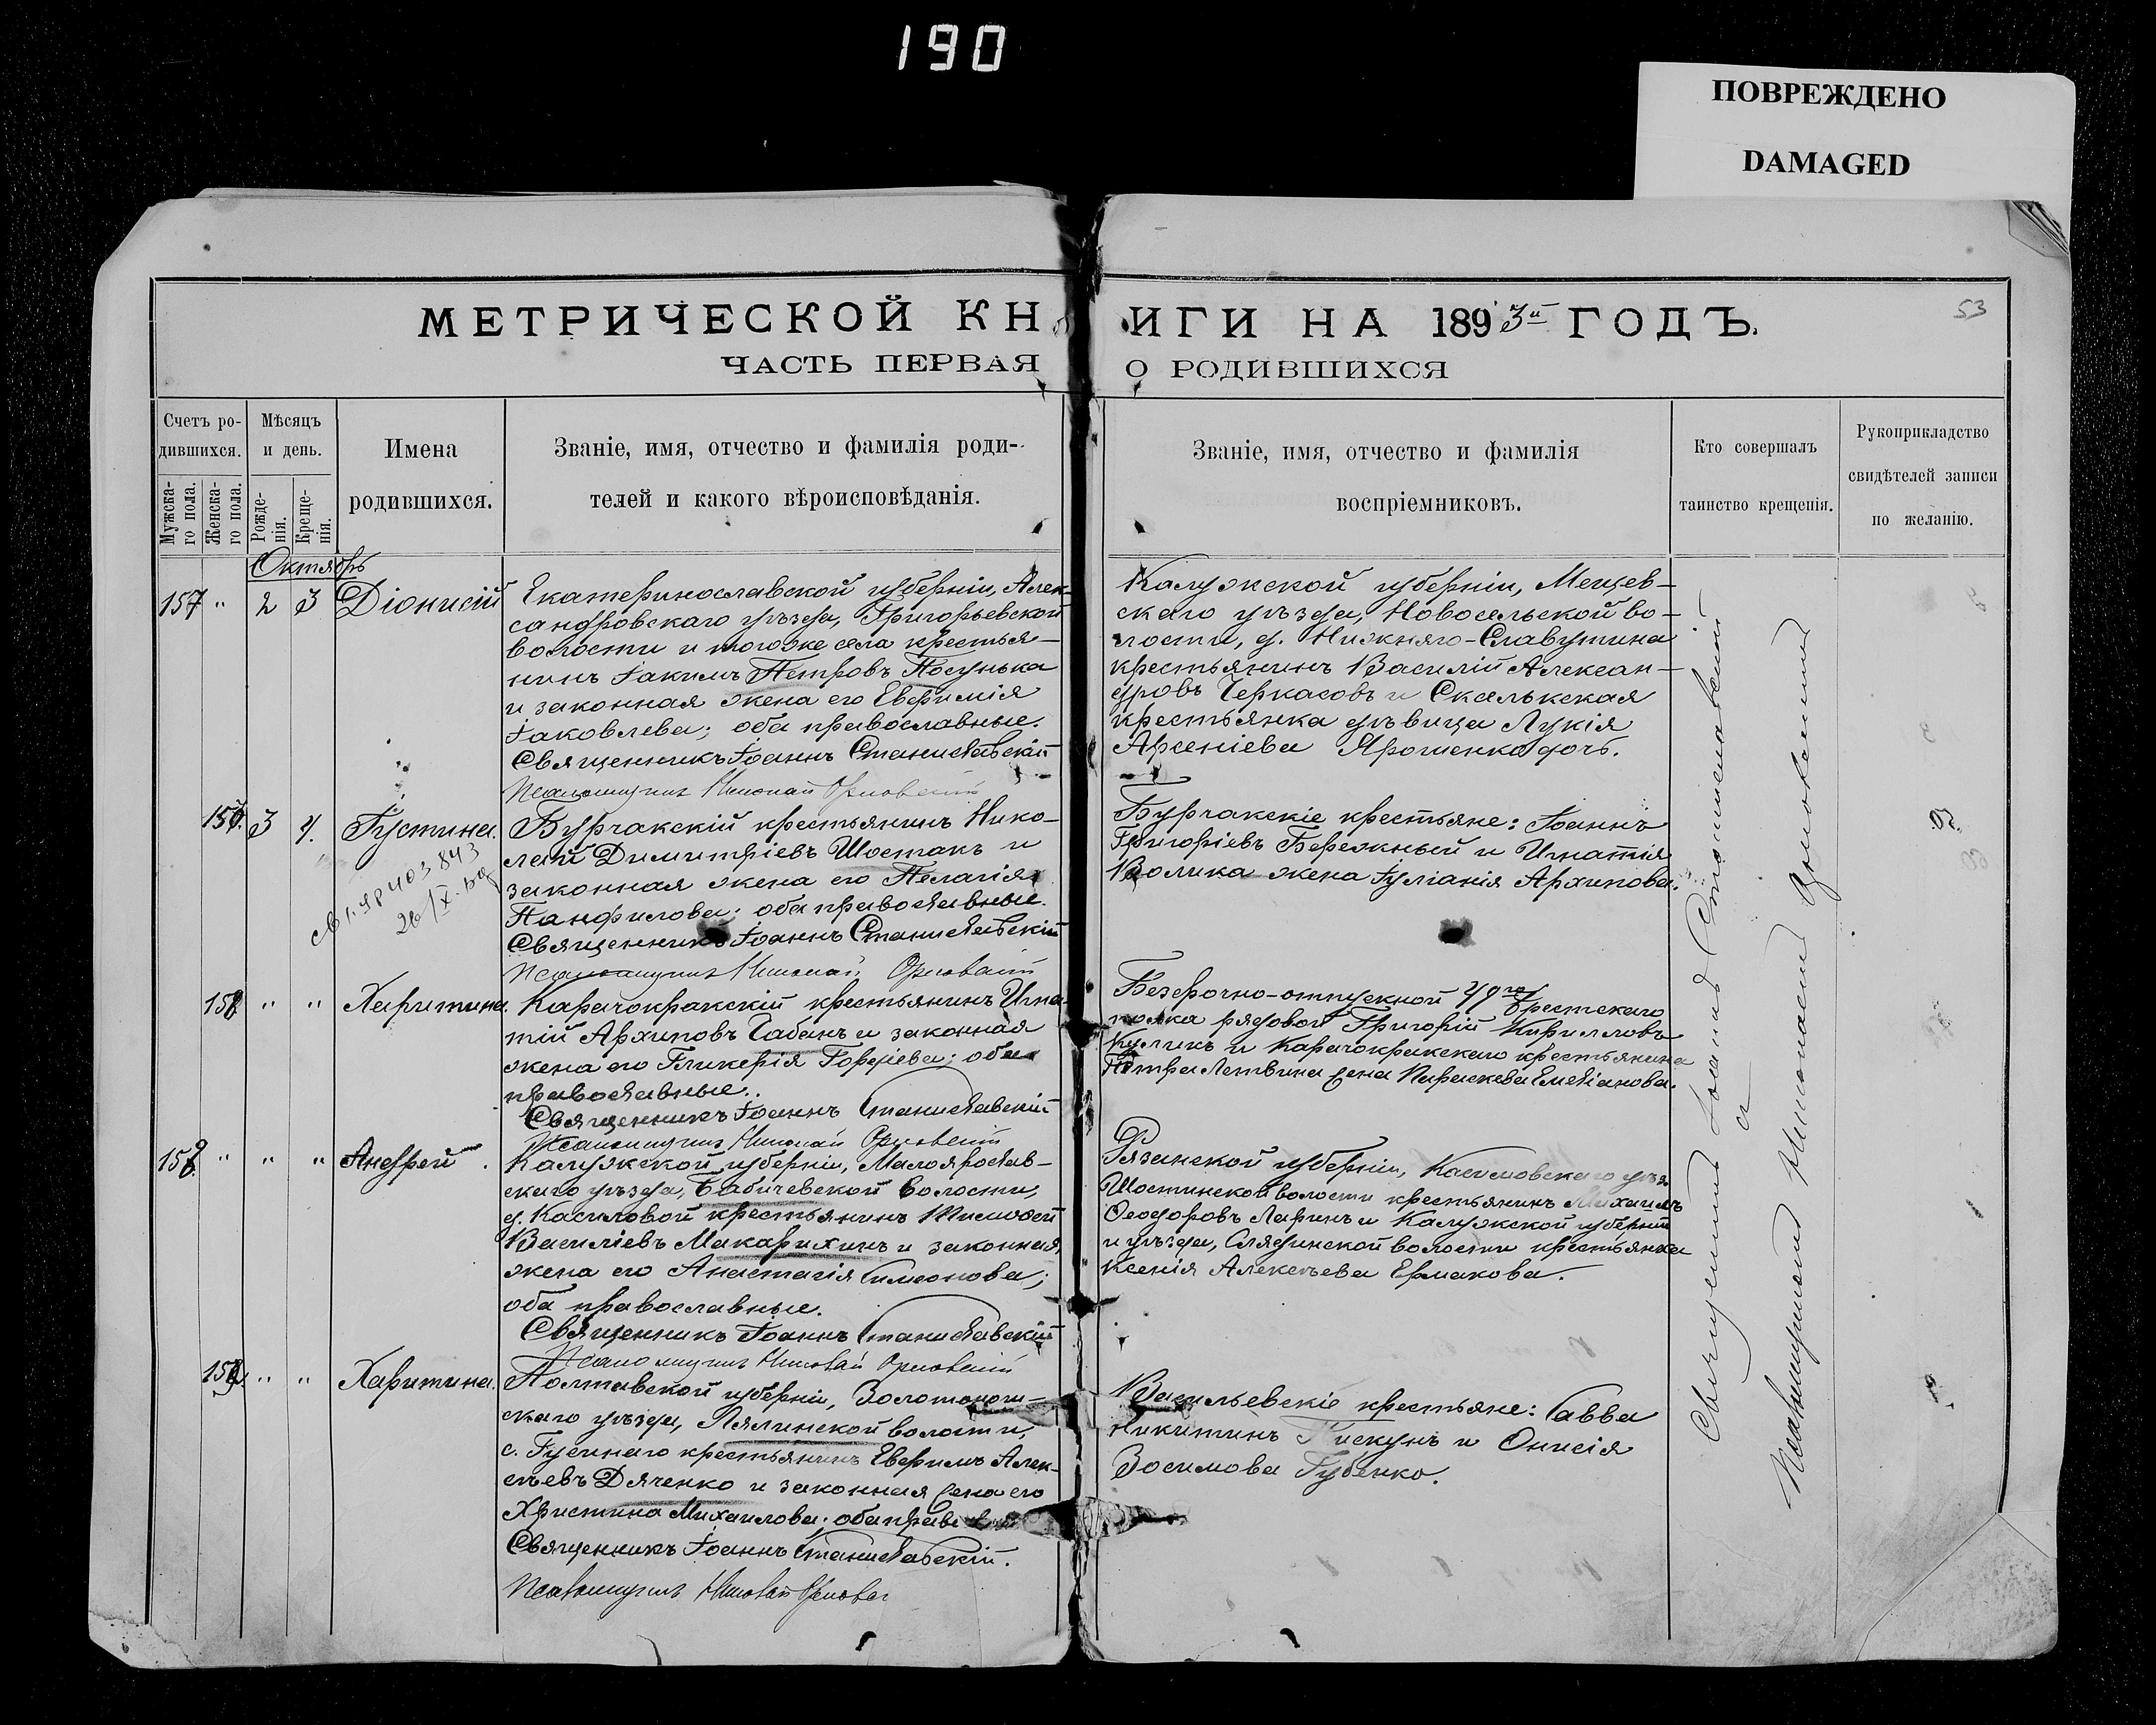 190
ПОВРЕЖДЕНО
DAMAGED
МЕТРИЧЕСКОЙ КНИГИ НА 1893й ГОДЪ.
53
ЧАСТЬ ПЕРВАЯ О РОДИВШИХСЯ
Счетъ родившихся.
Мужскаго пола.
Женскаго пола.
Мѣсяцъ и день.
Рожденія.
Крещенія.
Имена
родившихся.
Званіе, имя, отчество и фамилія роди-
телей и какого вѣроисповѣданія.
Званіе, имя, отчество и фамилія
воспріемниковъ.
Кто совершалъ
таинство крещенія.
Рукоприкладство
свидѣтелей записи
по желанію.
Октябрь
157 " 2 3 Діонисій
Екатеринославской губерніи, Алек-
сандровскаго уѣзда, Григорьевской
волости и тогоже села крестья-
нинъ Іакимъ Петровъ Посунька
и законная жена его Евфимія
Іаковлева; оба православные.
Священникъ Іоаннъ Станиславскій
Псаломщикъ Николай
Калужской губерніи, Мещев-
скаго уѣзда, Новосельской во-
лости, д. Нижняго-Славутина
крестьянинъ Василій Алексан-
дровъ Черкасовъ и Скалькская
крестьянка дѣвица Лукія
Арсеніева Ярошенко дочь.
157. 3 4. Іустина.
403843
26/IX
Бурчакскій крестьянинъ Нико-
лай Димитріевъ Шостакъ и
законная жена его Пелагія
Панфилова; оба православные.
Священникъ Іоаннъ Станиславскій
Псаломщикъ Николай
Бурчакскіе крестьяне: Іоаннъ
Григоріевъ Бережный и Игнатія
Волика жена Іуліанія Архипова.
158 " " Харитина.
Карачокракскій крестьянинъ Игна-
тій Архиповъ Чабанъ и законная
жена его Гликерія Гордіева; оба
православные.
Священникъ Іоаннъ Станиславскій
Псаломщикъ Николай
Безсрочно-отпускной 49го Брестскаго
полка рядовой Григорій Кирилловъ
Куликъ и Карачокракскаго крестьянина
Петра Летвина жена Параскева Емеліанова.
158 " " " Андрей.
Калужской губерніи, Малояросла-
скаго уѣзда, Бабичевской волости,
д. Касиловой крестьянинъ Тимофей
Василіевъ Макарихинъ и законная
жена его Анастасія Симеонова;
оба православные.
Священникъ Іоаннъ Станиславскій
Псаломщикъ Николай
Рязанской губерніи, Касимовскаго уѣз.
Шостинской волости крестьянинъ Михаилъ
Ѳеодоровъ Ларинъ и Калужской губерніи
и уѣзда, Слядинской волости крестьянка
Ксенія Алексѣева Ермакова.
159. " " Харитина.
Полтавской губерніи, Золотонош-
скаго уѣзда, Лялинской волости,
с. Гусинаго крестьянинъ Евфимъ Алек-
сѣевъ Дяченко и законная жена его
Христина Михаилова; оба
Священникъ Іоаннъ Станиславскій.
Псаломщикъ Николай
Васильевскіе крестьяне: Савва
Никитинъ Пискунъ и Онисія
Зосимова Губенко.
Священникъ Іоаннъ Станиславскій
съ
Псаломщикомъ Николаемъ